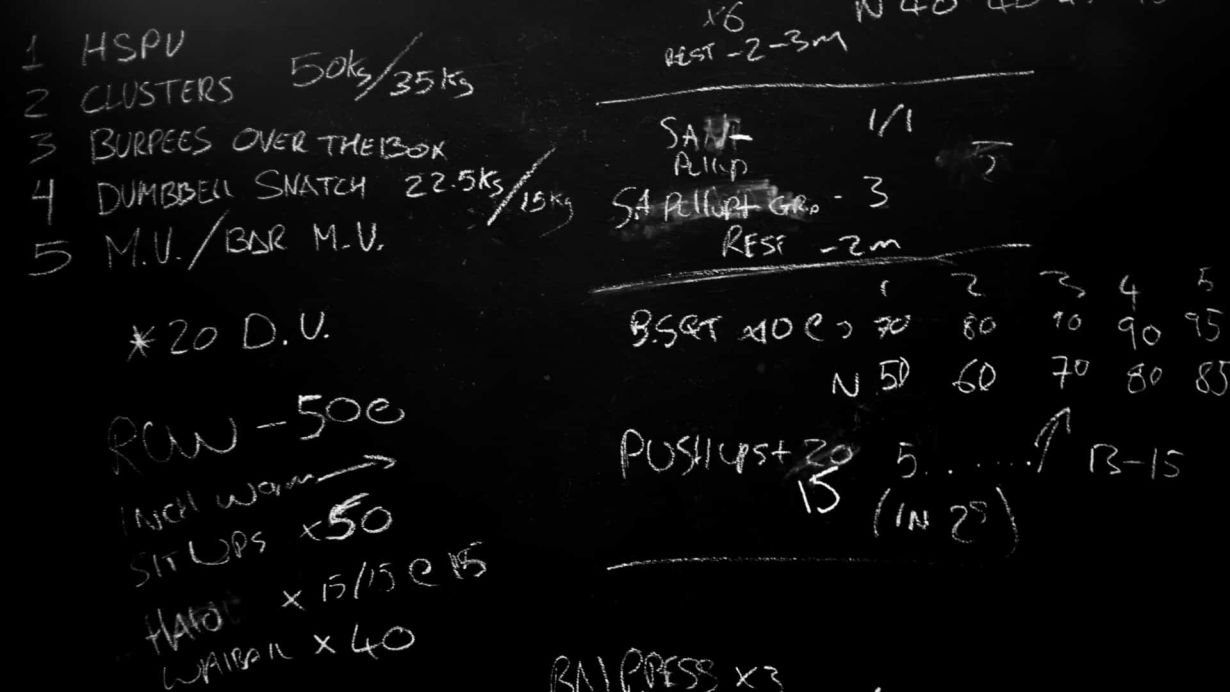 1 HSPU
2 CLUSTERS 50kg/35kg
3 BURPEES OVER THE BOX
4 DUMBBELL SNATCH 22.5kg/15kg
5 M.U./BAR M.U.
*20 D.U.
ROW - 500
INCH WORM →
SIT UPS x50
x 15/15 @ 15
WALLBALL x 40
x6
REST - 2-3m
N 40 40
1/1
PULLUP
SA PULLUP + - 3
REST - 2m
1 2 3 4 5
B.SQT x10 @ 70 80 90 90 95
N 50 60 70 80 85
PUSHUPS + 20 5....... ↗ 13-15
15 (IN 25)
PRESS x3